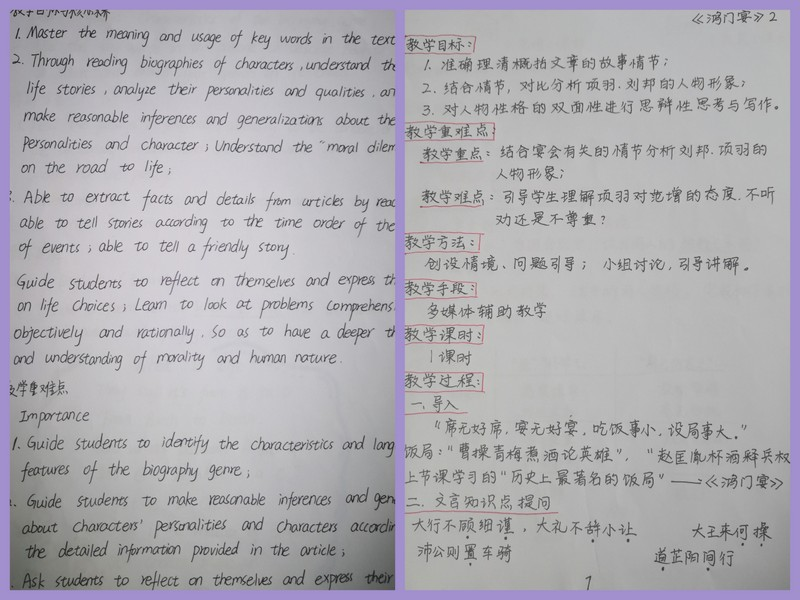 1. Master the meaning and usage of key words in the text
2. Through reading biographies of characters, understand the
life stories, analyze their personalities and qualities, an
make reasonable inferences and generalizations about the
Personalities and character; Understand the "moral dilem
on the road to life;
Able to extract facts and details from urticles by read
able to tell stories according to the time order of the
of events; able to tell a friendly story.
Guide students to reflect on themselves and express th
on life choices; Learn to look at problems comprehens
objectively and rationally, so as to have a deeper th
and understanding of morality and human nature.
教学重难点
Importance
1. Guide students to identify the characteristics and lang
features of the biography genre;
Guide students to make reasonable inferences and gene
about characters' personalities and characters accordin
the detailed information provided in the article;
Ask students to reflect on themselves and express their
《鸿门宴》2
教学目标:
1. 准确理清概括文章的故事情节;
2. 结合情节,对比分析项羽、刘邦的人物形象;
3. 对人物性格的双面性进行思辩性思考与写作。
教学重难点:
教学重点:结合宴会有关的情节分析刘邦、项羽的
人物形象;
教学难点:引导学生理解项羽对范增的态度,不听
劝还是不尊重?
教学方法:
创设情境、问题引导; 小组讨论,引导讲解。
教学手段:
多媒体辅助教学
教学课时:
1课时
教学过程:
一、导入
"席无好席,宴无好宴,吃饭事小,设局事大。"
饭局:"曹操青梅煮酒论英雄","赵匡胤杯酒释兵权
上节课学习的"历史上最著名的饭局"——→《鸿门宴》
二、文言知识点提问
大行不顾细谨,大礼不辞小让 大王来何操
沛公则置车骑 道芷阳间行
1